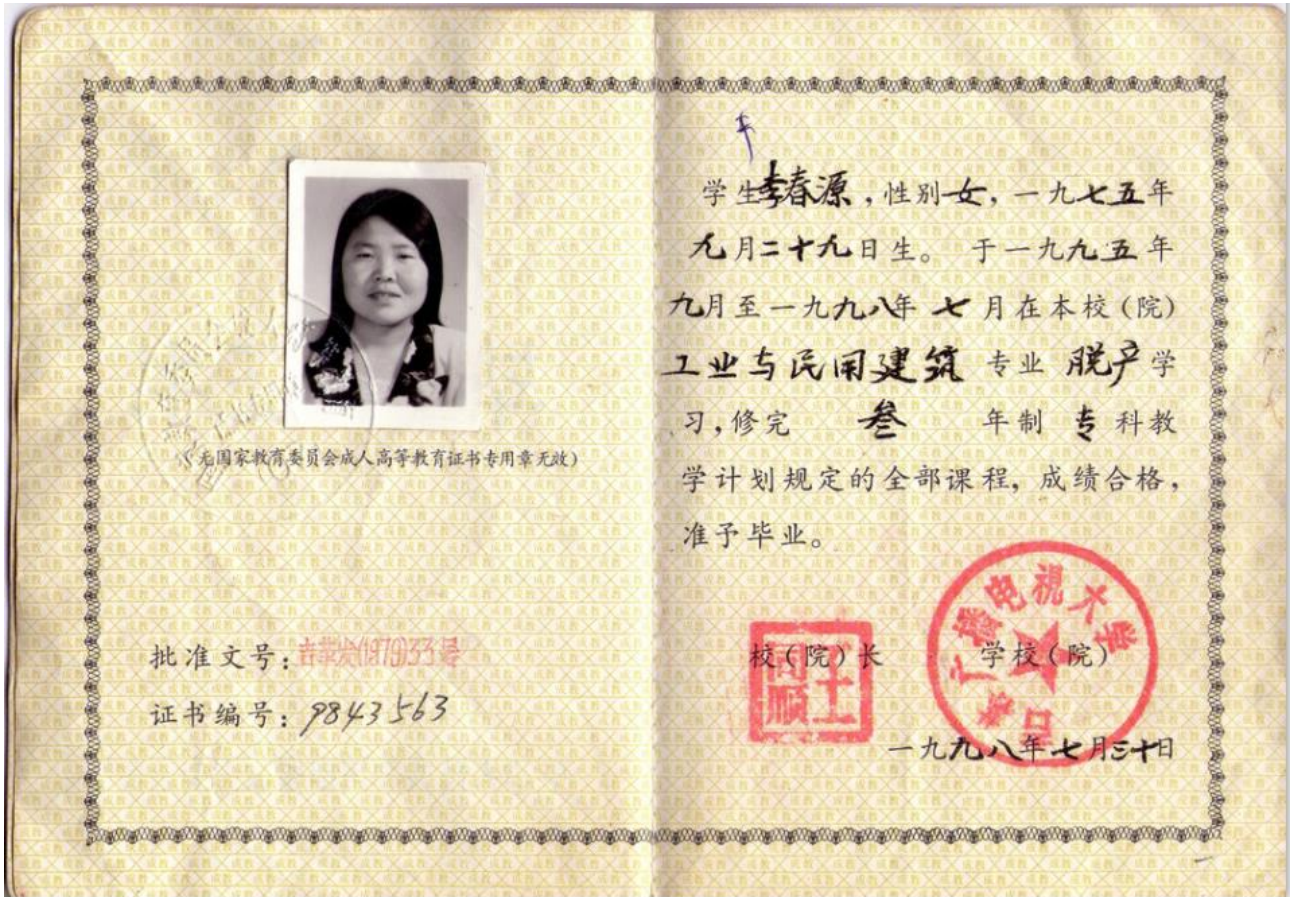 （无国家教育委员会成人高等教育证书专用章无效）
批准文号：
证书编号：9843563
学生李春源，性别女，一九七五年
九月二十九日生。于一九九五年
九月至一九九八年七月在本校（院）
工业与民用建筑 专业 脱产学
习，修完 叁 年制 专科教
学计划规定的全部课程，成绩合格，
准予毕业。
校（院）长 学校（院）
王同顺
吉林广播电视大学
一九九八年七月三十日